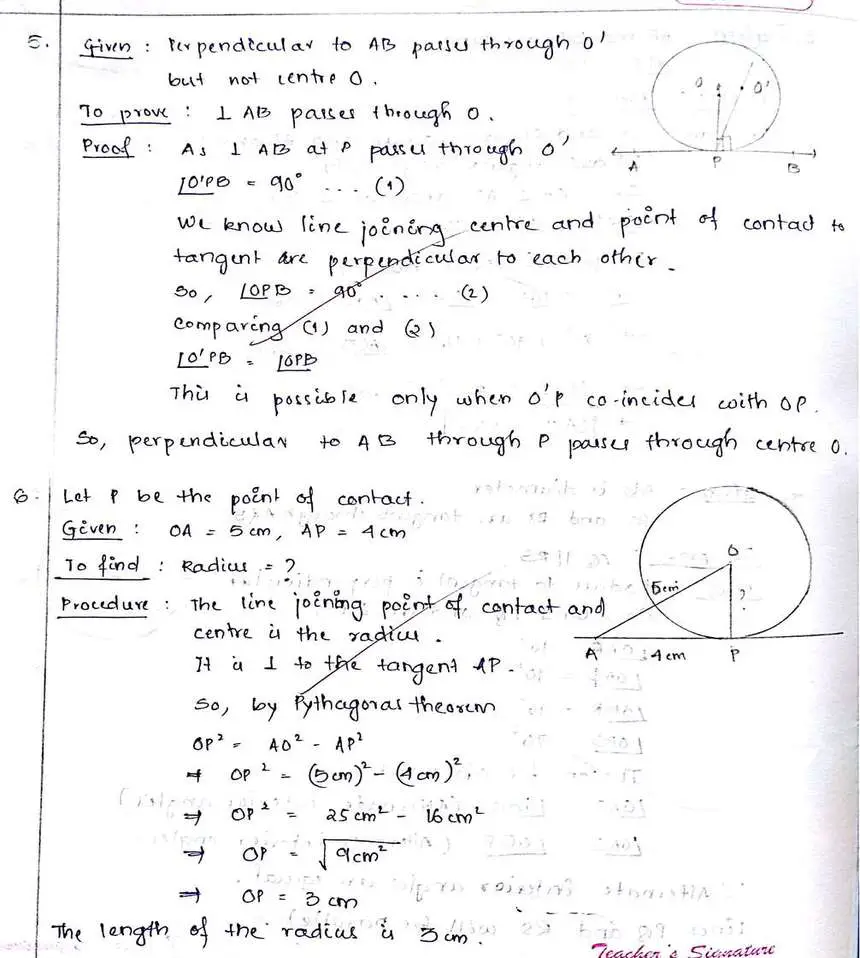 5. Given : Perpendicular to AB passes through O'
but not centre O.
To prove : ⊥ AB passes through O.
Proof : As ⊥ AB at P passes through O'
∠O'PB = 90° ... (1)
We know line joining centre and point of contact to
tangent are perpendicular to each other.
So, ∠OPB = 90° .... (2)
Comparing (1) and (2)
∠O'PB = ∠OPB
This is possible only when O'P co-incides with OP.
So, perpendicular to AB through P passes through centre O.
O O'
A P B
6. Let P be the point of contact.
Given : OA = 5 cm, AP = 4 cm
To find : Radius = ?
Procedure : The line joining point of contact and
centre is the radius.
It is ⊥ to the tangent AP.
So, by Pythagoras theorem
OP² = AO² - AP²
⇒ OP² = (5cm)² - (4cm)²
⇒ OP² = 25 cm² - 16 cm²
⇒ OP = √9cm²
⇒ OP = 3 cm
The length of the radius is 3 cm.
O
5cm ?
A 4cm P
Teacher's Signature